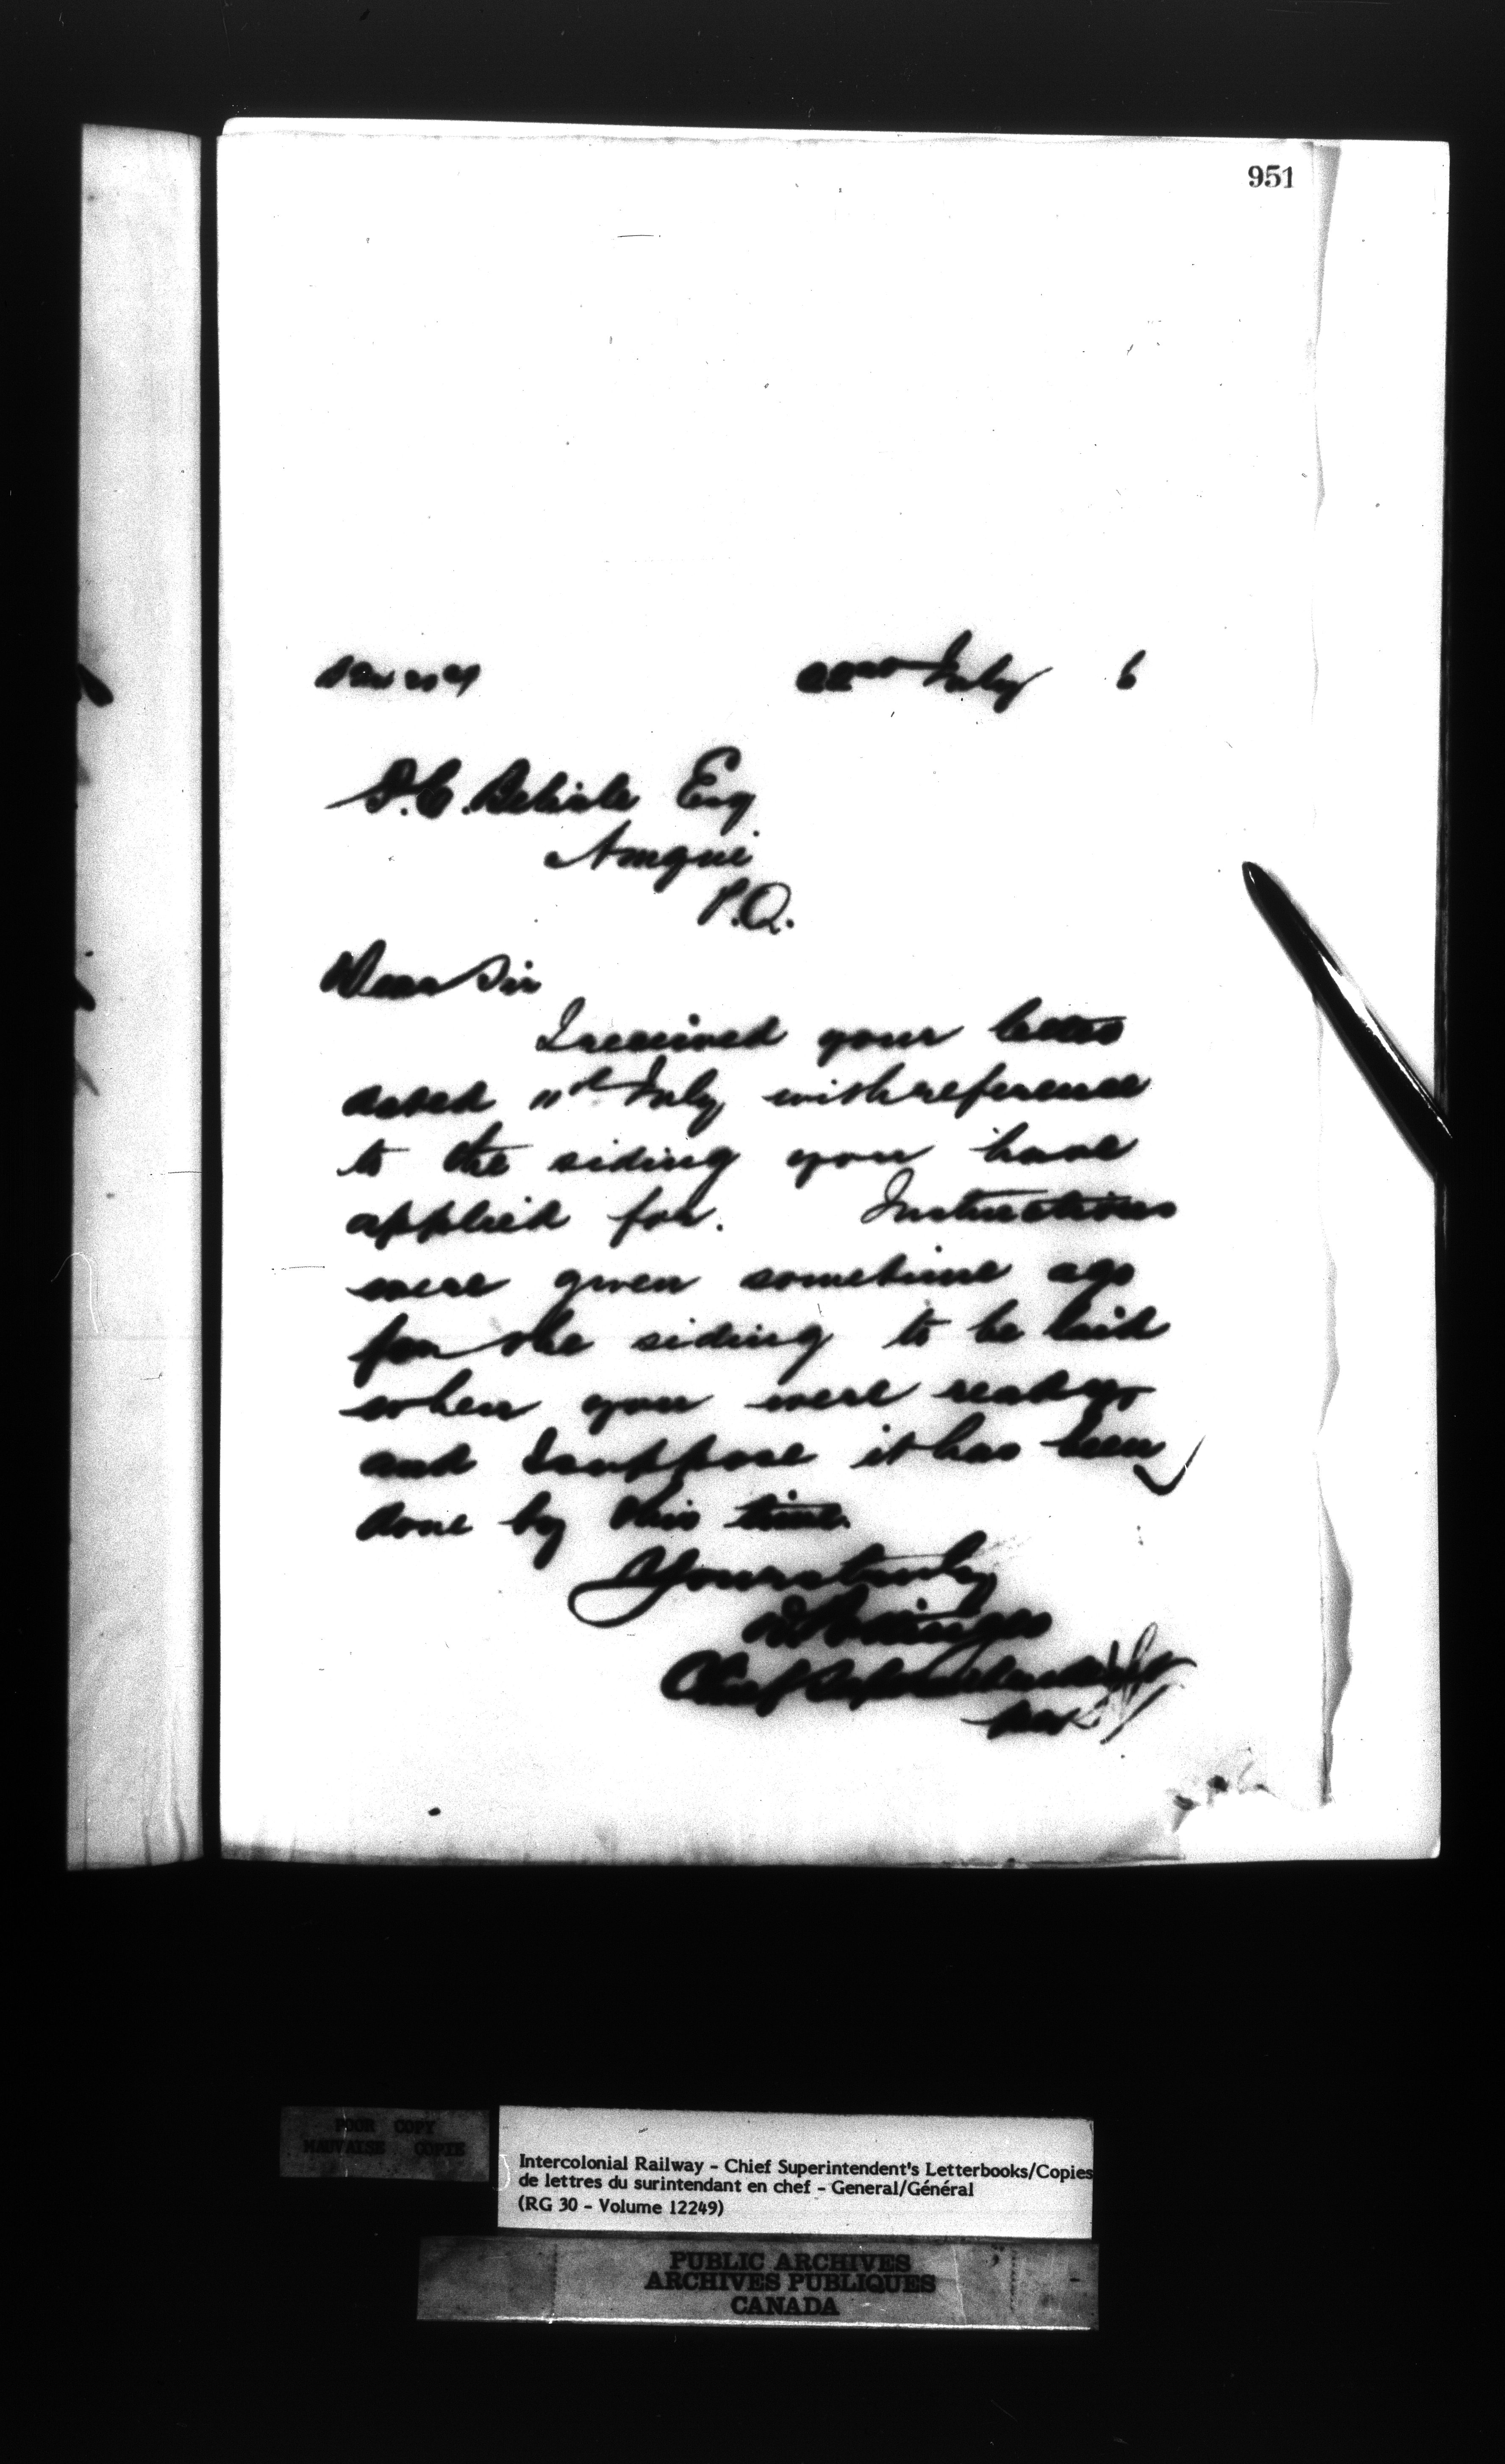 951
22nd July 6
Belisle Esq
Amqui
P.Q.
Dear Sir
I received your letter
dated 11th July with reference
to the siding you have
applied for. Instructions
were given sometime ago
for the siding to be laid
when you were ready
and I suppose it has been
done by this time.
Yours truly
D Pottinger
Chief Superintendent
POOR COPY
MAUVAISE COPIE
Intercolonial Railway - Chief Superintendent's Letterbooks/Copies
de lettres du surintendant en chef - General/Général
(RG 30 - Volume 12249)
PUBLIC ARCHIVES
ARCHIVES PUBLIQUES
CANADA